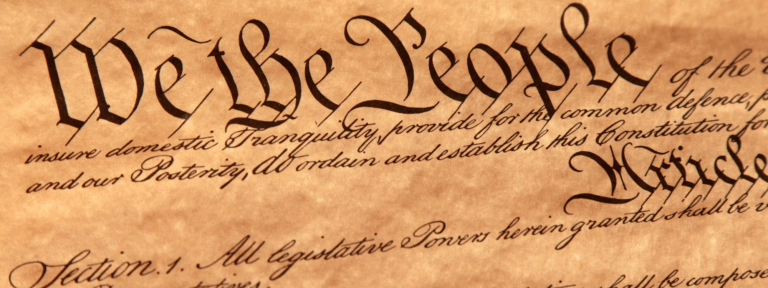 We the People of the
insure domestic Tranquility, provide for the common defence,
and our Posterity, do ordain and establish this Constitution for
Article
Section. 1. All legislative Powers herein granted shall be
shall be compose